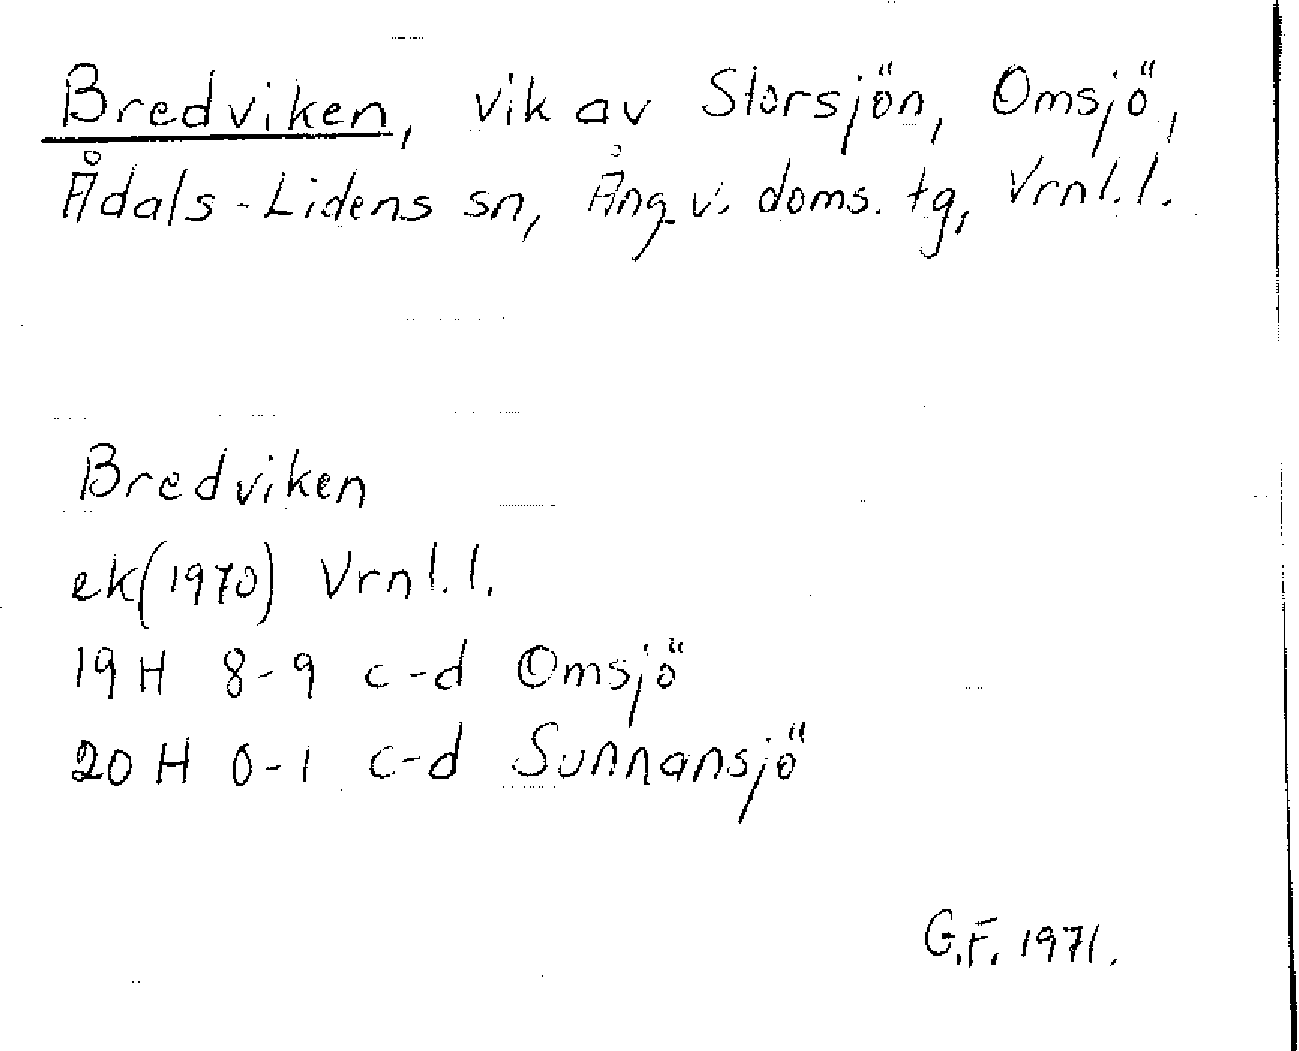 Bredviken, vik av Storsjön, Omsjö,
Ådals-Lidens sn, Ång. v. doms. tg, Vrnl. l.
Bredviken
ek (1970) Vrnl. l.
19 H 8-9 c-d Omsjö
20 H 0-1 c-d Sunnansjö
G.F. 1971.